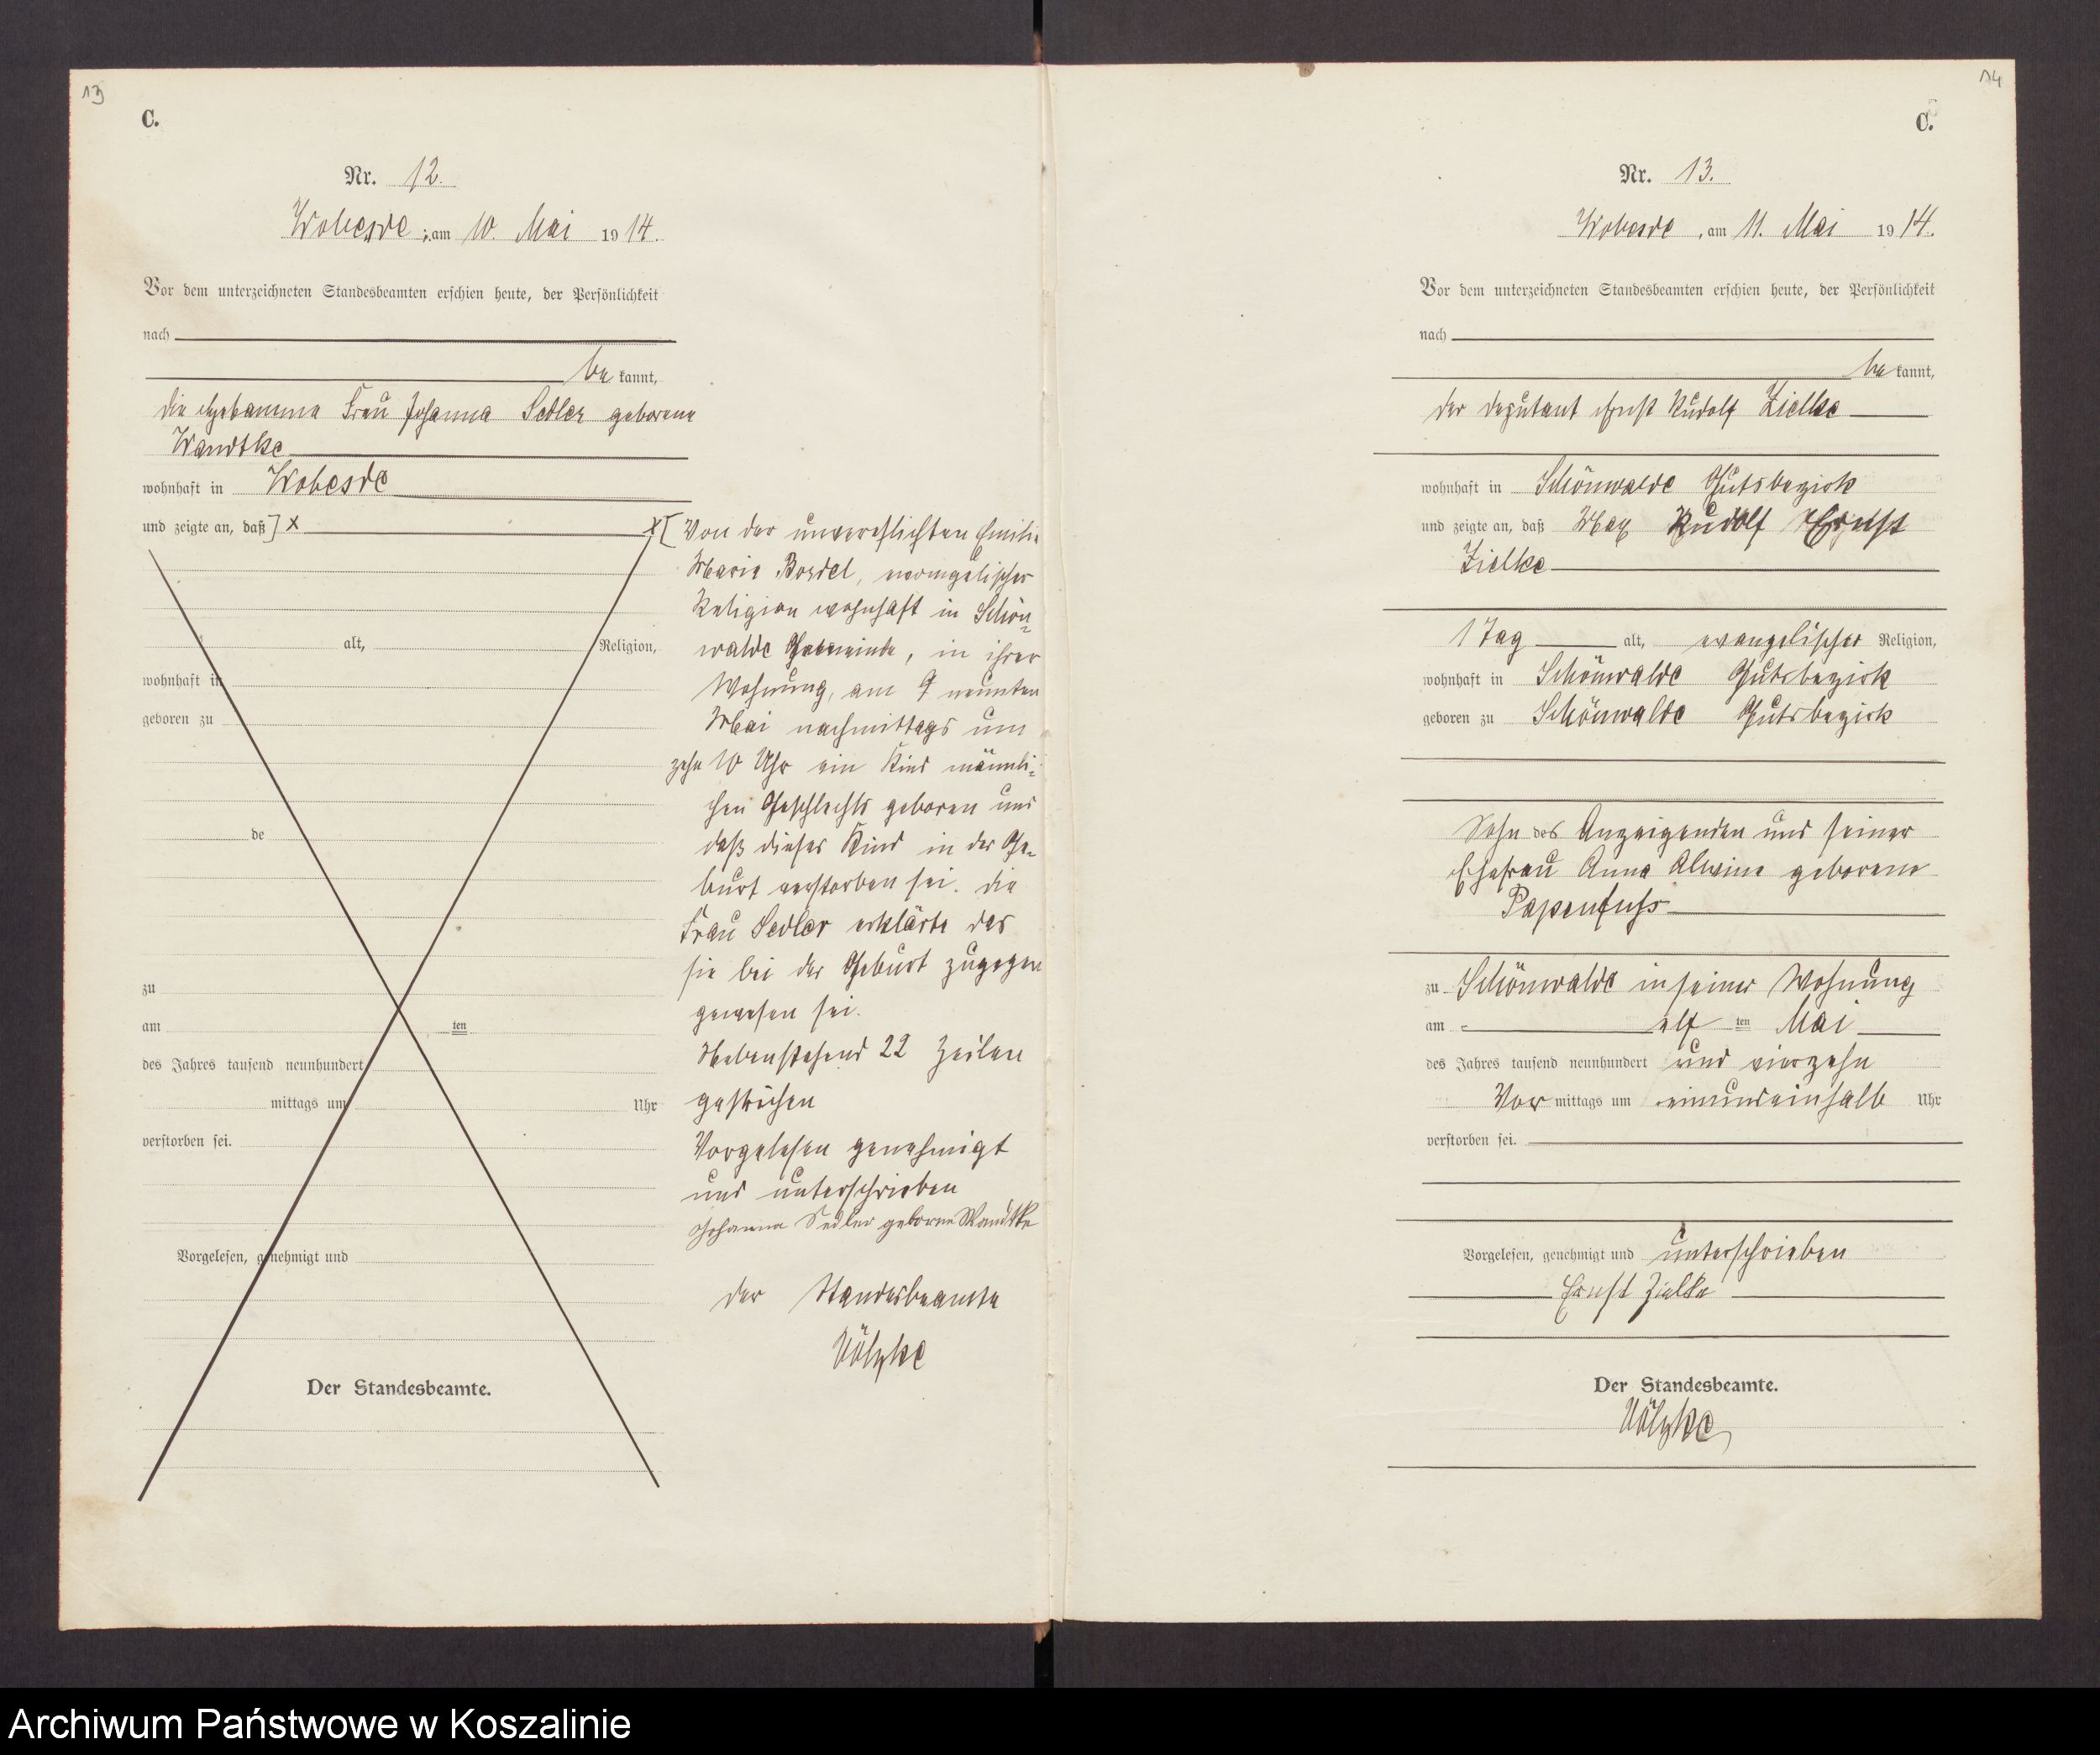 13
C.
Nr. 12.
Wobesde, am 10. Mai 1914.
Vor dem unterzeichneten Standesbeamten erschien heute, der Persönlichkeit
nach
be kannt,
die Hebamme Frau Johanna Sedler geborene
Wandtke
wohnhaft in Wobesde
und zeigte an, daß] x
alt, Religion,
wohnhaft in
geboren zu
de
zu
am ten
des Jahres tausend neunhundert
mittags um Uhr
verstorben sei.
Vorgelesen, genehmigt und
Der Standesbeamte.
x[ Von der unverehlichten Emilie
Marie Bordel, evangelischer
Religion wohnhaft in Schön=
walde Gemeinde, in ihrer
Wohnung, am 9 neunten
Mai nachmittags um
zehn 10 Uhr ein Kind männli=
chen Geschlechts geboren und
daß dieses Kind in der Ge=
burt verstorben sei. Die
Frau Sedler erklärte das
sie bei der Geburt zugegen
gewesen sei.
Nebenstehend 22 Zeilen
gestrichen
Vorgelesen genehmigt
und unterschrieben
Johanna Sedler geborne Wandtke
Der Standesbeamte
Völzke
14
C.
Nr. 13.
Wobesde, am 11. Mai 1914.
Vor dem unterzeichneten Standesbeamten erschien heute, der Persönlichkeit
nach
be kannt,
der Deputant Ernst Rudolf Zielke
wohnhaft in Schönwalde Gutsbezirk
und zeigte an, daß Max Rudolf Ernst
Zielke
1 Tag alt, evangelischer Religion,
wohnhaft in Schönwalde Gutsbezirk
geboren zu Schönwalde Gutsbezirk
Sohn des Anzeigenden und seiner
Ehefrau Anna Alwine geborene
Papenfuss
zu Schönwalde in seiner Wohnung
am elf ten Mai
des Jahres tausend neunhundert und vierzehn
Vor mittags um einundeinhalb Uhr
verstorben sei.
Vorgelesen, genehmigt und unterschrieben
Ernst Zielke
Der Standesbeamte.
Völzke
Archiwum Państwowe w Koszalinie